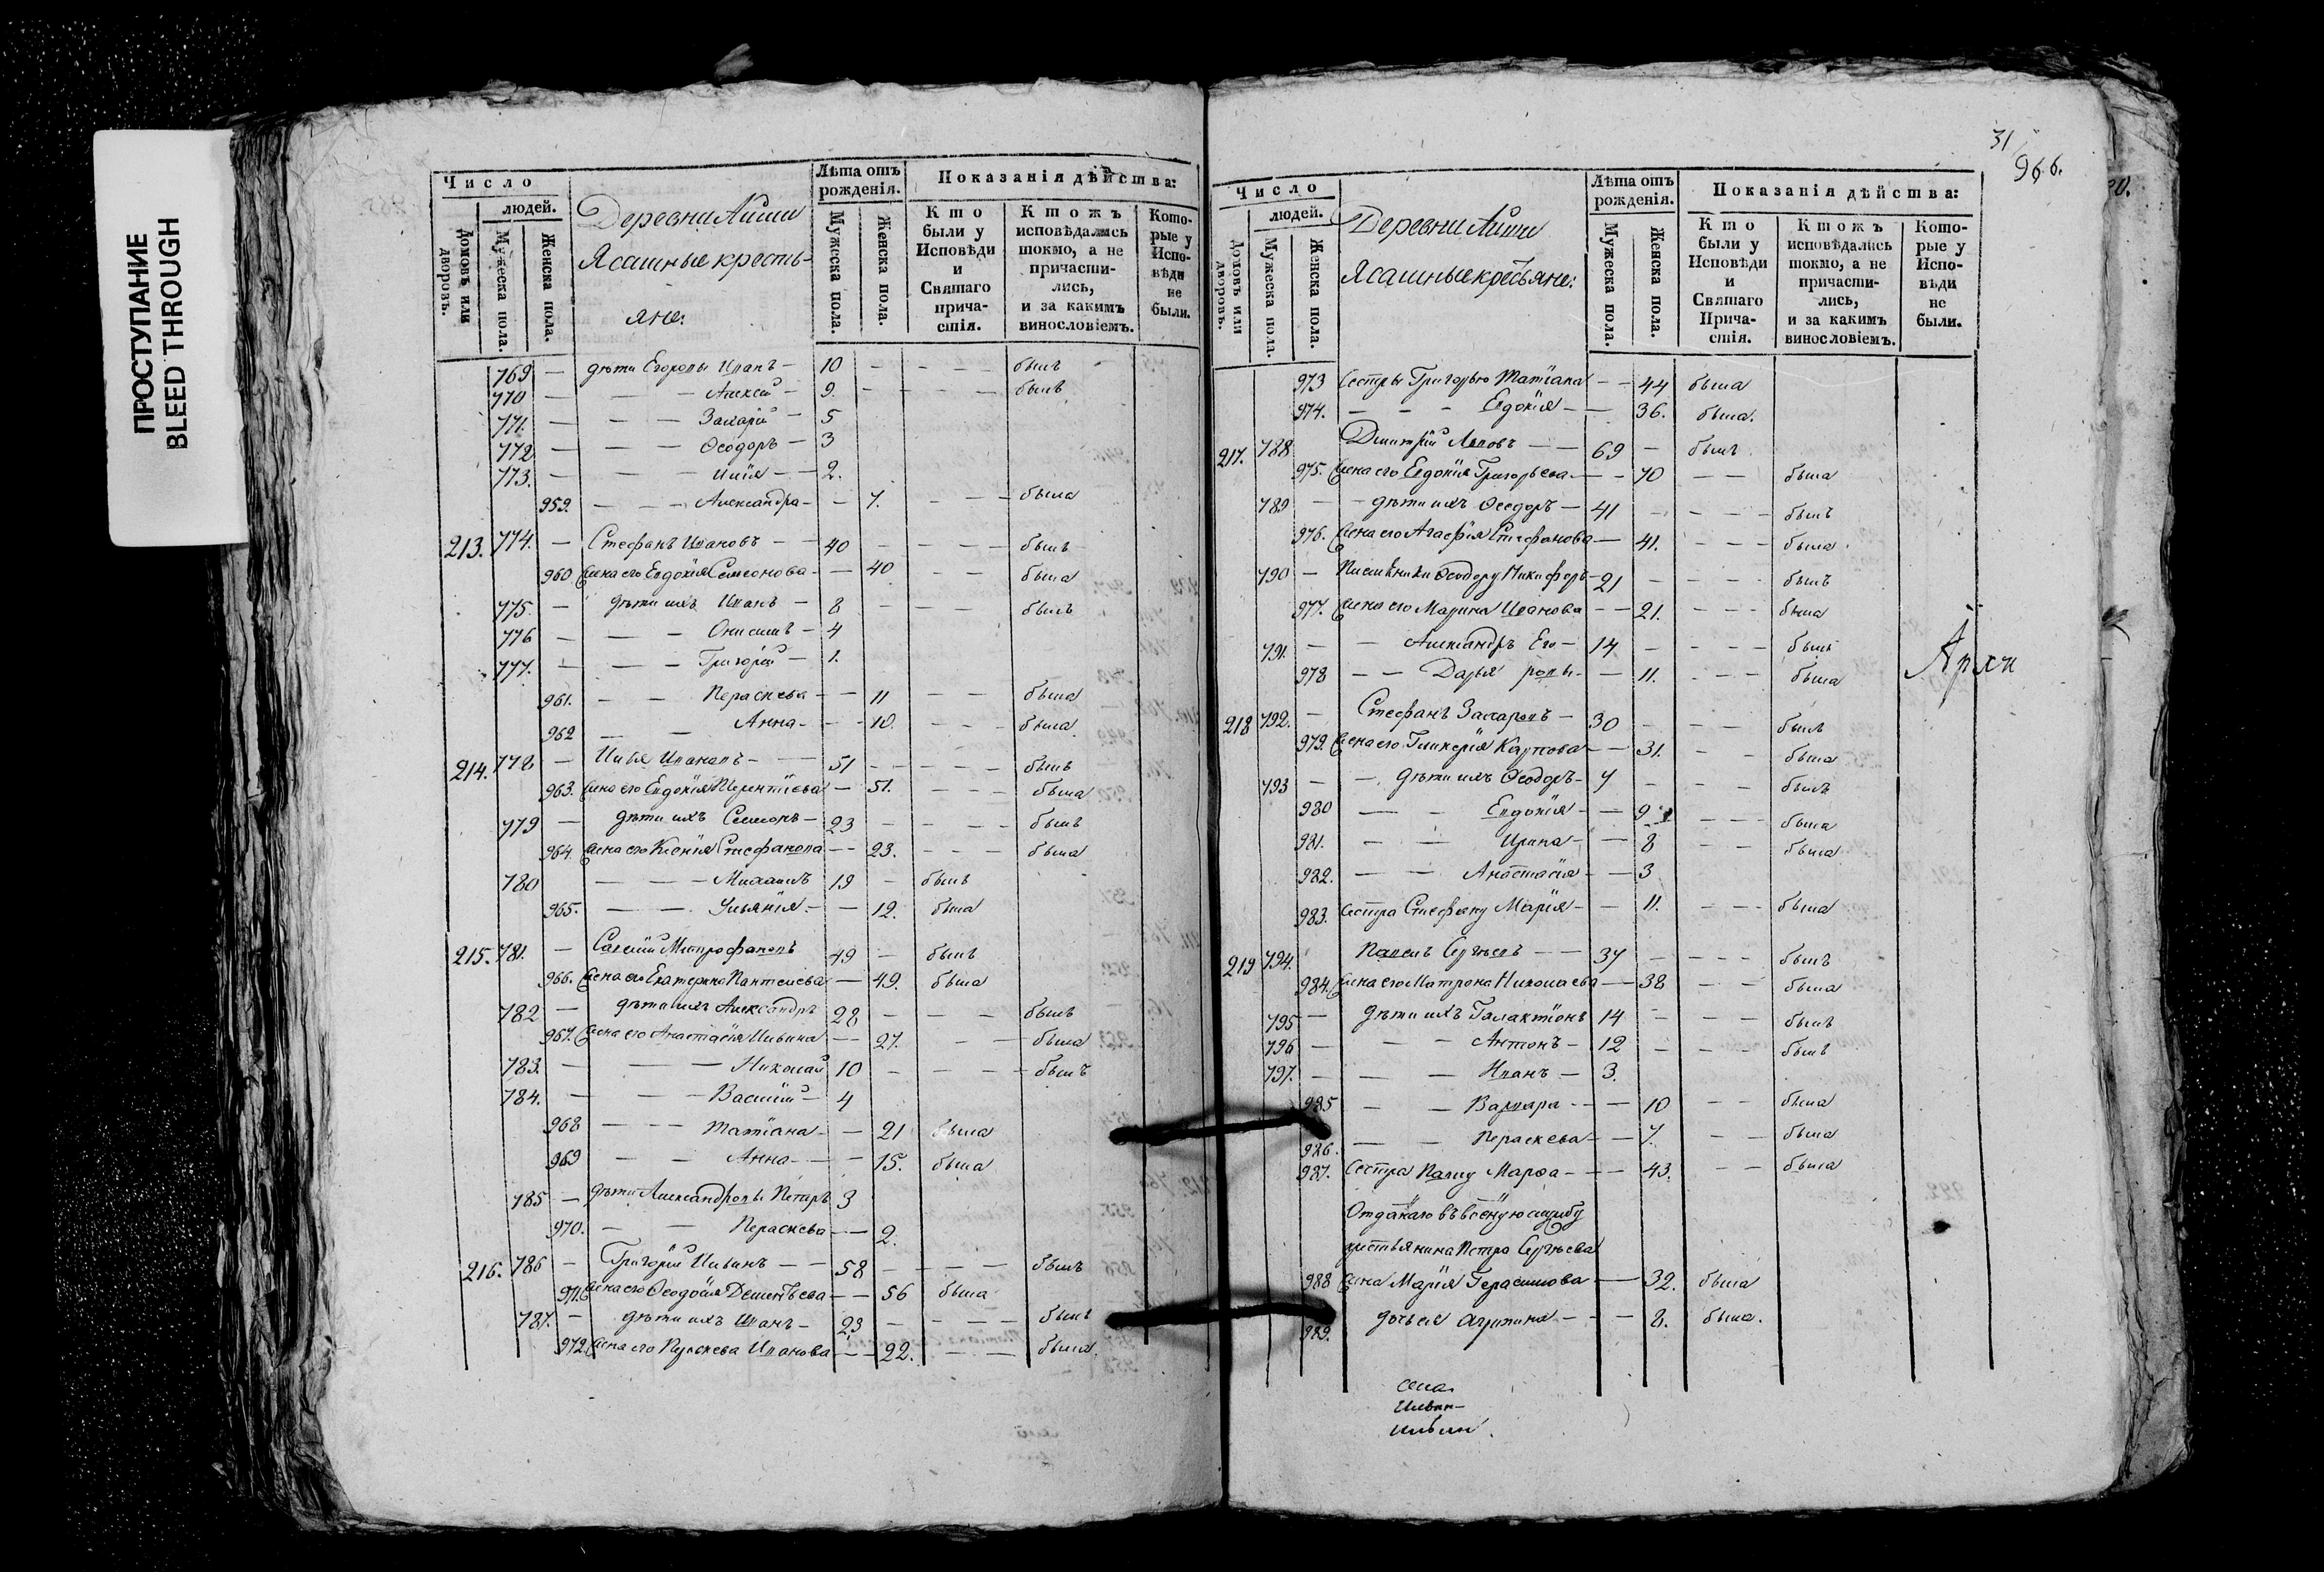 ПРОСТУПАНИЕ
BLEED THROUGH
Число
людей.
Домовъ или дворовъ.
Мужеска пола.
Женска пола.
Деревни Айши
Ясашные кресть-
яне:
Лѣта отъ рожденія.
Мужеска пола.
Женска пола.
Показанія дѣйства:
Кто были у Исповѣди и Святаго причастія.
Ктожъ исповѣдались токмо, а не причастились, и за какимъ винословіемъ.
Которые у Исповѣди не были.
769 — дѣти Егоровы Иванъ — 10 — — — былъ
770 — — — Алексѣй — 9. — — — былъ
771. — — — Захарій — 5
772 — — — Ѳеодоръ — 3
773. — — — Илія — — 2.
959. — — — Александра — — 7. — — — была
213. 774. — Стефанъ Ивановъ — — 40 — — — былъ
960 Жена его Евдокія Семенова — — 40 — — была
775. — дѣти ихъ Иванъ — 8 — — — былъ
776 — — — Онисимъ — 4
777. — — — Григорій — 1.
961. — — Параскева — — 11 — — была
962 — — Анна — — 10. — — — была
214. 778 — Илья Ивановъ — — 51 — — — — былъ
963. Жена его Евдокія — 51. — — — была
779 — дѣти ихъ Семенъ — 23 — — — — былъ
964. Жена его Ксенія Стефанова — — 23. — — — была
780 — — — Михаилъ 19 — былъ
965. — — Ульянія — — 12. была
215. 781. — Савелій Митрофановъ 49 — былъ
966. Жена его Екатерина Пантелеева — 49. была
782 — дѣти ихъ Александръ 28 — — — былъ
967. Жена его Анастасія Ильина — — 27. — — была
783. — — — Николай 10 — — — — былъ
784. — — — Василій — 4
968 — — — Татіана — — 21 была
969 — — Анна — — — 15. была
785 — дѣти Александровы Петръ 3
970. — — Параскева — — 2.
216. 786 — Григорій Ильинъ — — 58 — — — — былъ
971. Жена его Ѳеодосія Дементьева — — 56 была
787. — дѣти ихъ Иванъ — 23 — — — — былъ
972. Жена его Параскева Иванова — — 22. — — была.
31
966.
Число
людей.
Домовъ или дворовъ.
Мужеска пола.
Женска пола.
Деревни Айши
Ясашные крестьяне:
Лѣта отъ рожденія.
Мужеска пола.
Женска пола.
Показанія дѣйства:
Кто были у Исповѣди и Святаго Причастія.
Ктожъ исповѣдались токмо, а не причастились, и за какимъ винословіемъ.
Которые у Исповѣди не были.
973 Сестры Григорью Татіана — — 44 была
974. — — — Евдокія — — 36. была.
217. 788 Дмитрій — — 69 — былъ
975. Жена его Евдокія Григорьева — — 70 — — была
789 — — дѣти ихъ Ѳеодоръ — 41 — — — — былъ
976. Жена его Агафія Стефанова — 41. — — — была
790 — Ѳеодору Никифоръ — 21 — — — — былъ
977. Жена его Марина Иванова — — 21. — — — была
791. — — Александръ Его — 14 — — — — былъ
978 — — Дарья ровы — — 11. — — — была
218 792. — Стефанъ Захаровъ — 30 — — — былъ
979. Жена его Гликерія Карпова — — 31. — — была
793 — — дѣти ихъ Ѳеодоръ — 7 — — — былъ
980 — — Евдокія — — 9 — — — была
981. — — Ирина — — 8 — — была
982. — — Анастасія — — 3
983. Сестра Стефану Марія — — 11. — — — была
219 794. Павелъ Сергѣевъ — — 37 — — — — былъ
984. Жена его Матрона Николаева — — 38 — — была
795 — дѣти ихъ Галактіонъ 14 — — — былъ
796 — — — Антонъ — 12 — — — былъ
797. — — — Иванъ — 3.
985 — — Варвара — — — 10 — — была
986. — — Параскева — — 7. — — была
987. Сестра Павлу Марѳа — — — 43. — — была
Отданаго въ военную службу
крестьянина Петра Сергѣева
988 жена Марія Герасимова — — 32. была
989. дочь ея Агрипина — — — 8. была.